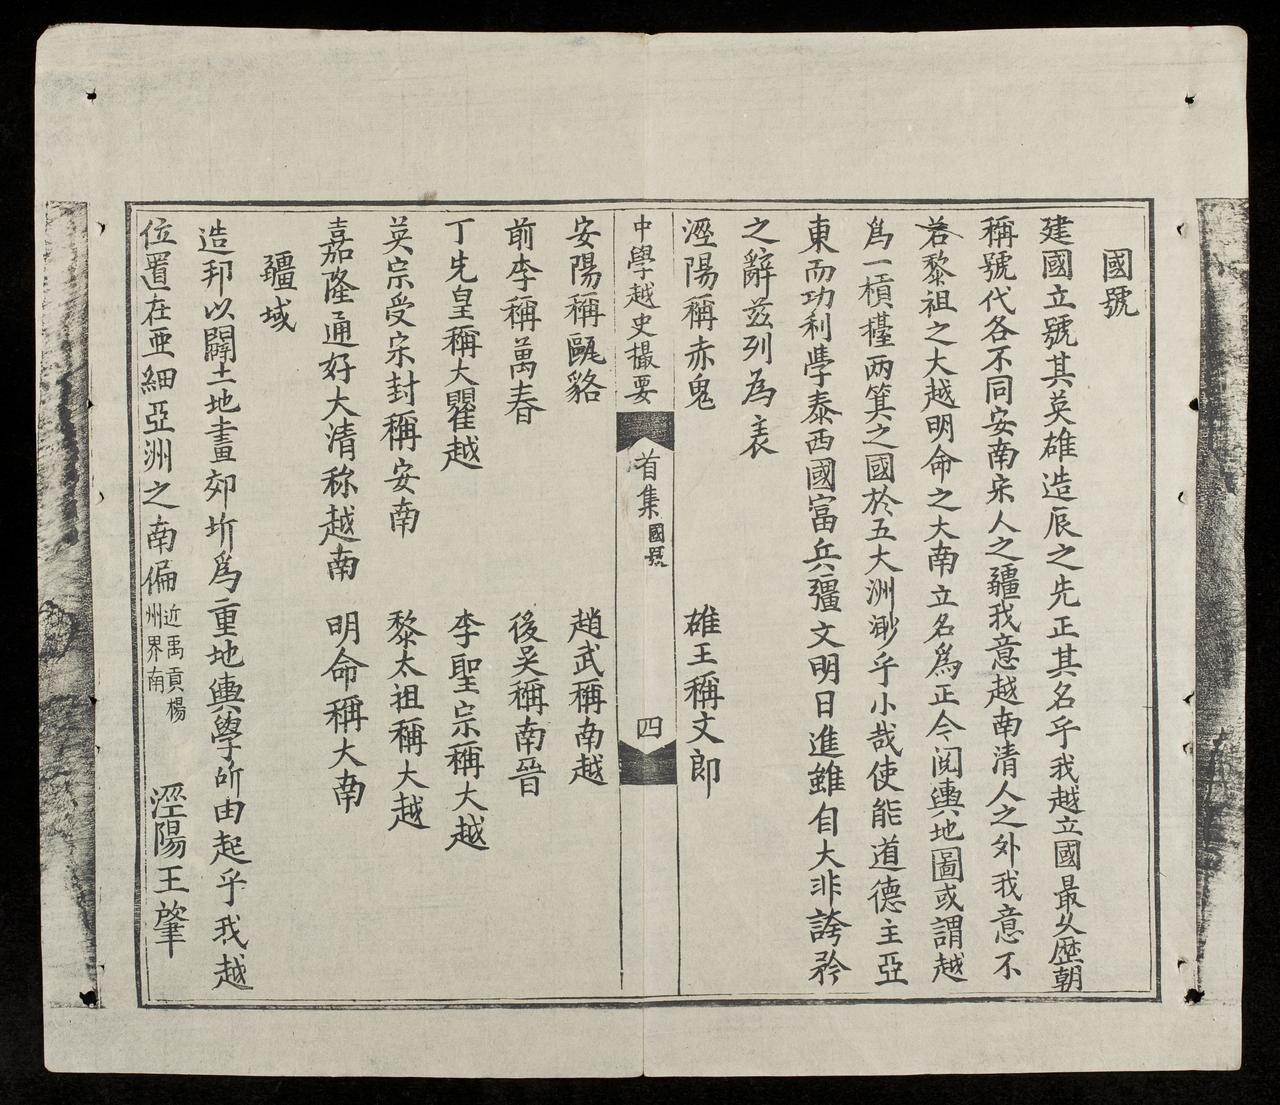 國號
建國立號其英雄造辰之先正其名乎我越立國最久歷朝
稱號代各不同安南宋人之疆我意越南清人之外我意不
若黎祖之大越明命之大南立名爲正今閱輿地圖或謂越
爲一槓檯兩箕之國於五大洲渺乎小哉使能道德主亞
東而功利學泰西國富兵彊文明日進雖自大非誇矜
之辭茲列爲表
涇陽稱赤鬼 雄王稱文郎
中學越史撮要 首集 國號 四
安陽稱甌貉 趙武稱南越
前李稱萬春 後吴稱南晉
丁先皇稱大瞿越 李聖宗稱大越
英宗受宋封稱安南 黎太祖稱大越
嘉隆通好大清称越南 明命稱大南
疆域
造邦以闢土地畫郊圻爲重地輿學所由起乎我越
位置在亜細亞洲之南偏 近禹貢楊州界南 涇陽王肇